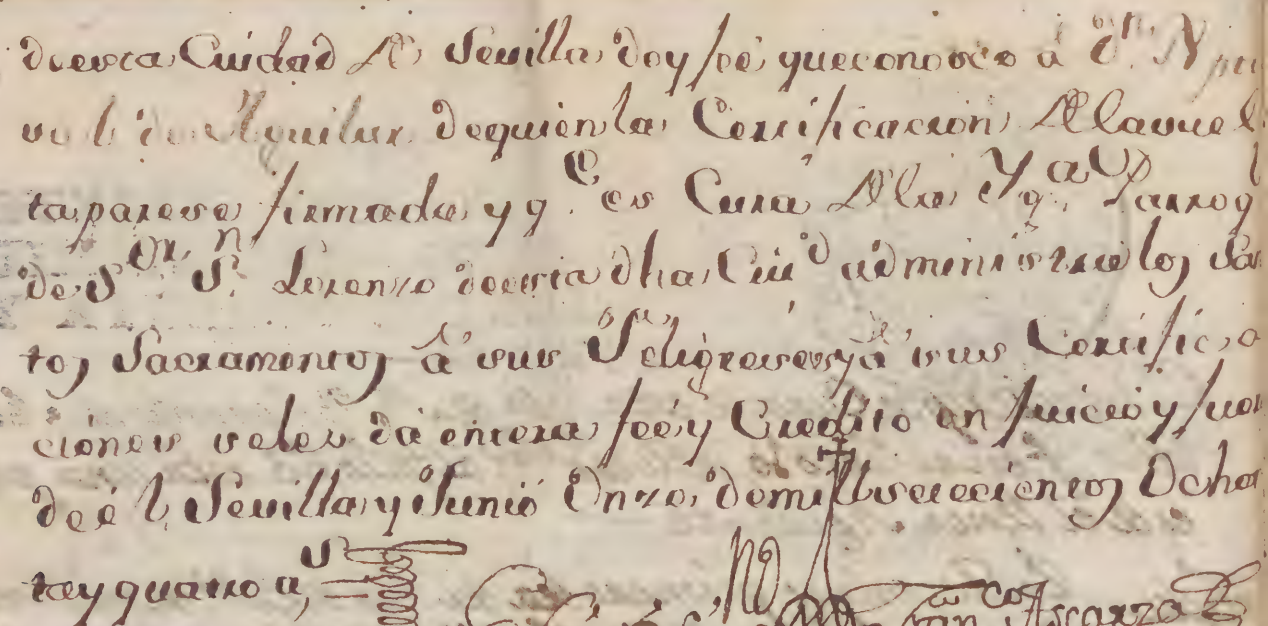 de esta Ciudad de Sevilla doy fee que conosco â Dn.
de Aguilar de quien la Certificacion de la vuel
ta parese firmada y qe. es Cura de la Yga. Parroql
de Sor. Sn. Lorenzo de esta dha Ciud administra los San
tos Sacramentos â sus Feligreses y â sus Certifica
ciónes se les dâ entera feé y Credito en Juicio y fuer
de él, Sevilla y Junio Onze de mill setecientos Ochen
ta y quatro as,
Franco Ascarza